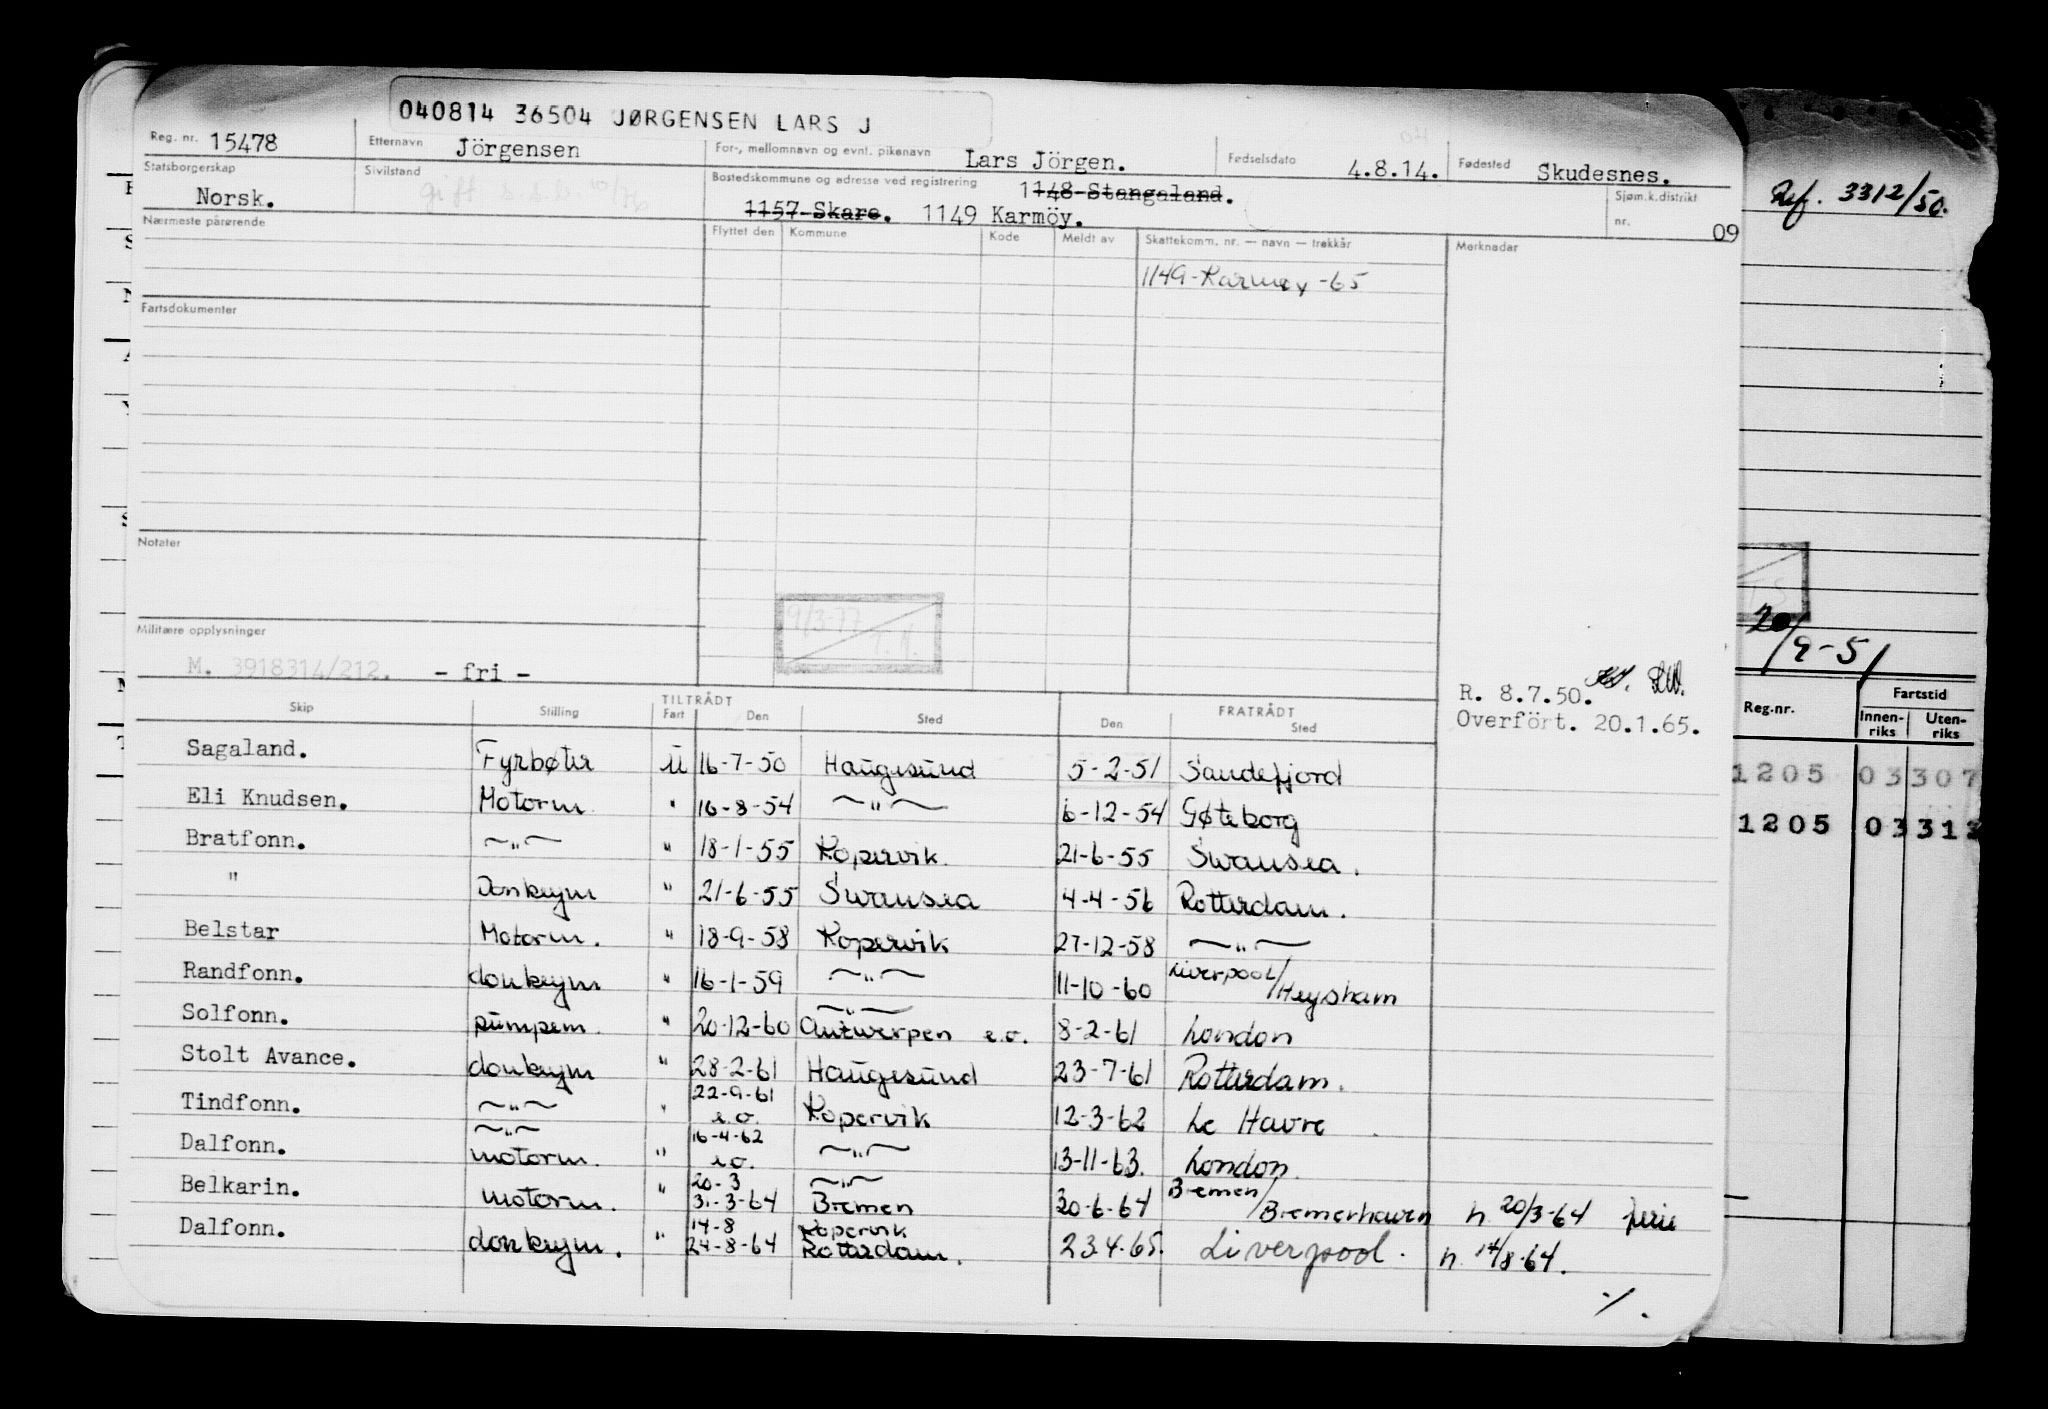 040814 36504 JØRGENSEN LARS J
Reg. nr. 15478 Etternavn Jörgensen For-, mellomnavn og evnt. pikenavn Lars Jörgen. Fødselsdato 4.8.14. Fødested Skudesnes.
Statsborgerskap Norsk. Sivilstand gift Bostedskommune og adresse ved registrering 1148 Stangaland. Sjøm.k.distrikt
1157 Skare. 1149 Karmöy. nr. 09
Nærmeste pårørende Flyttet den Kommune Kode Meldt av Skattekomm. nr. — navn — trekkår Merknader
1149-Karmøy-65
Fartsdokumenter
Notater
9/3-77
Militære opplysninger
M. 3918314/212. - fri -
R. 8.7.50.
Overfört. 20.1.65.
TILTRÅDT FRATRÅDT
Skip Stilling Fart Den Sted Den Sted
Sagaland. Fyrbøter U 16-7-50 Haugesund 5-2-51 Sandefjord
Eli Knudsen. Motorm. " 16-8-54 —"— 6-12-54 Gøteborg
Bratfonn. —"— " 18-1-55 Kopervik. 21-6-55 Swansea.
" Donkeym " 21-6-55 Swansea 4-4-56 Rotterdam.
Belstar Motorm. " 18-9-58 Kopervik 27-12-58 —"—
Randfonn. donkeym " 16-1-59 —"— 11-10-60 Liverpool/Heysham
Solfonn. pumpem. " 20-12-60 —"— Antwerpen e.o. 8-2-61 London
Stolt Avance. donkeym " 28-2-61 Haugesund 23-7-61 Rotterdam.
Tindfonn. —"— " 22-9-61 e.o. Kopervik 12-3-62 Le Havre
Dalfonn. —"— motorm. " 16-4-62 e.o. —"— 13-11-63. London.
Belkarin. motorm. " 20-3 31-3-64 —"— Bremen 30-6-64 Bremen/Bremerhaven h 20/3-64 ferie
Dalfonn. donkeym. " 14-8 24-8-64 Kopervik Rotterdam. 23.4.65. Liverpool. h. 14/8-64.
./.
Ref. 3312/50.
20/9-51
Reg.nr. Fartstid
Innen-riks Uten-riks
1205 03 307
1205 03 312